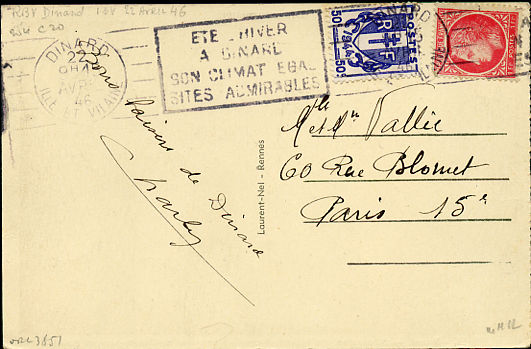 Dinard 22 Avril 46
DINARD
22
AVR
46
ILLE ET VILAINE
ETE HIVER
A DINARD
SON CLIMAT EGAL
SITES ADMIRABLES
50c
1944
RF
POSTES
50c
DINARD
Bons baisers de Dinard
Charley
Laurent-Nel - Rennes
Mr et Me Vallée
60 Rue Blomet
Paris 15e